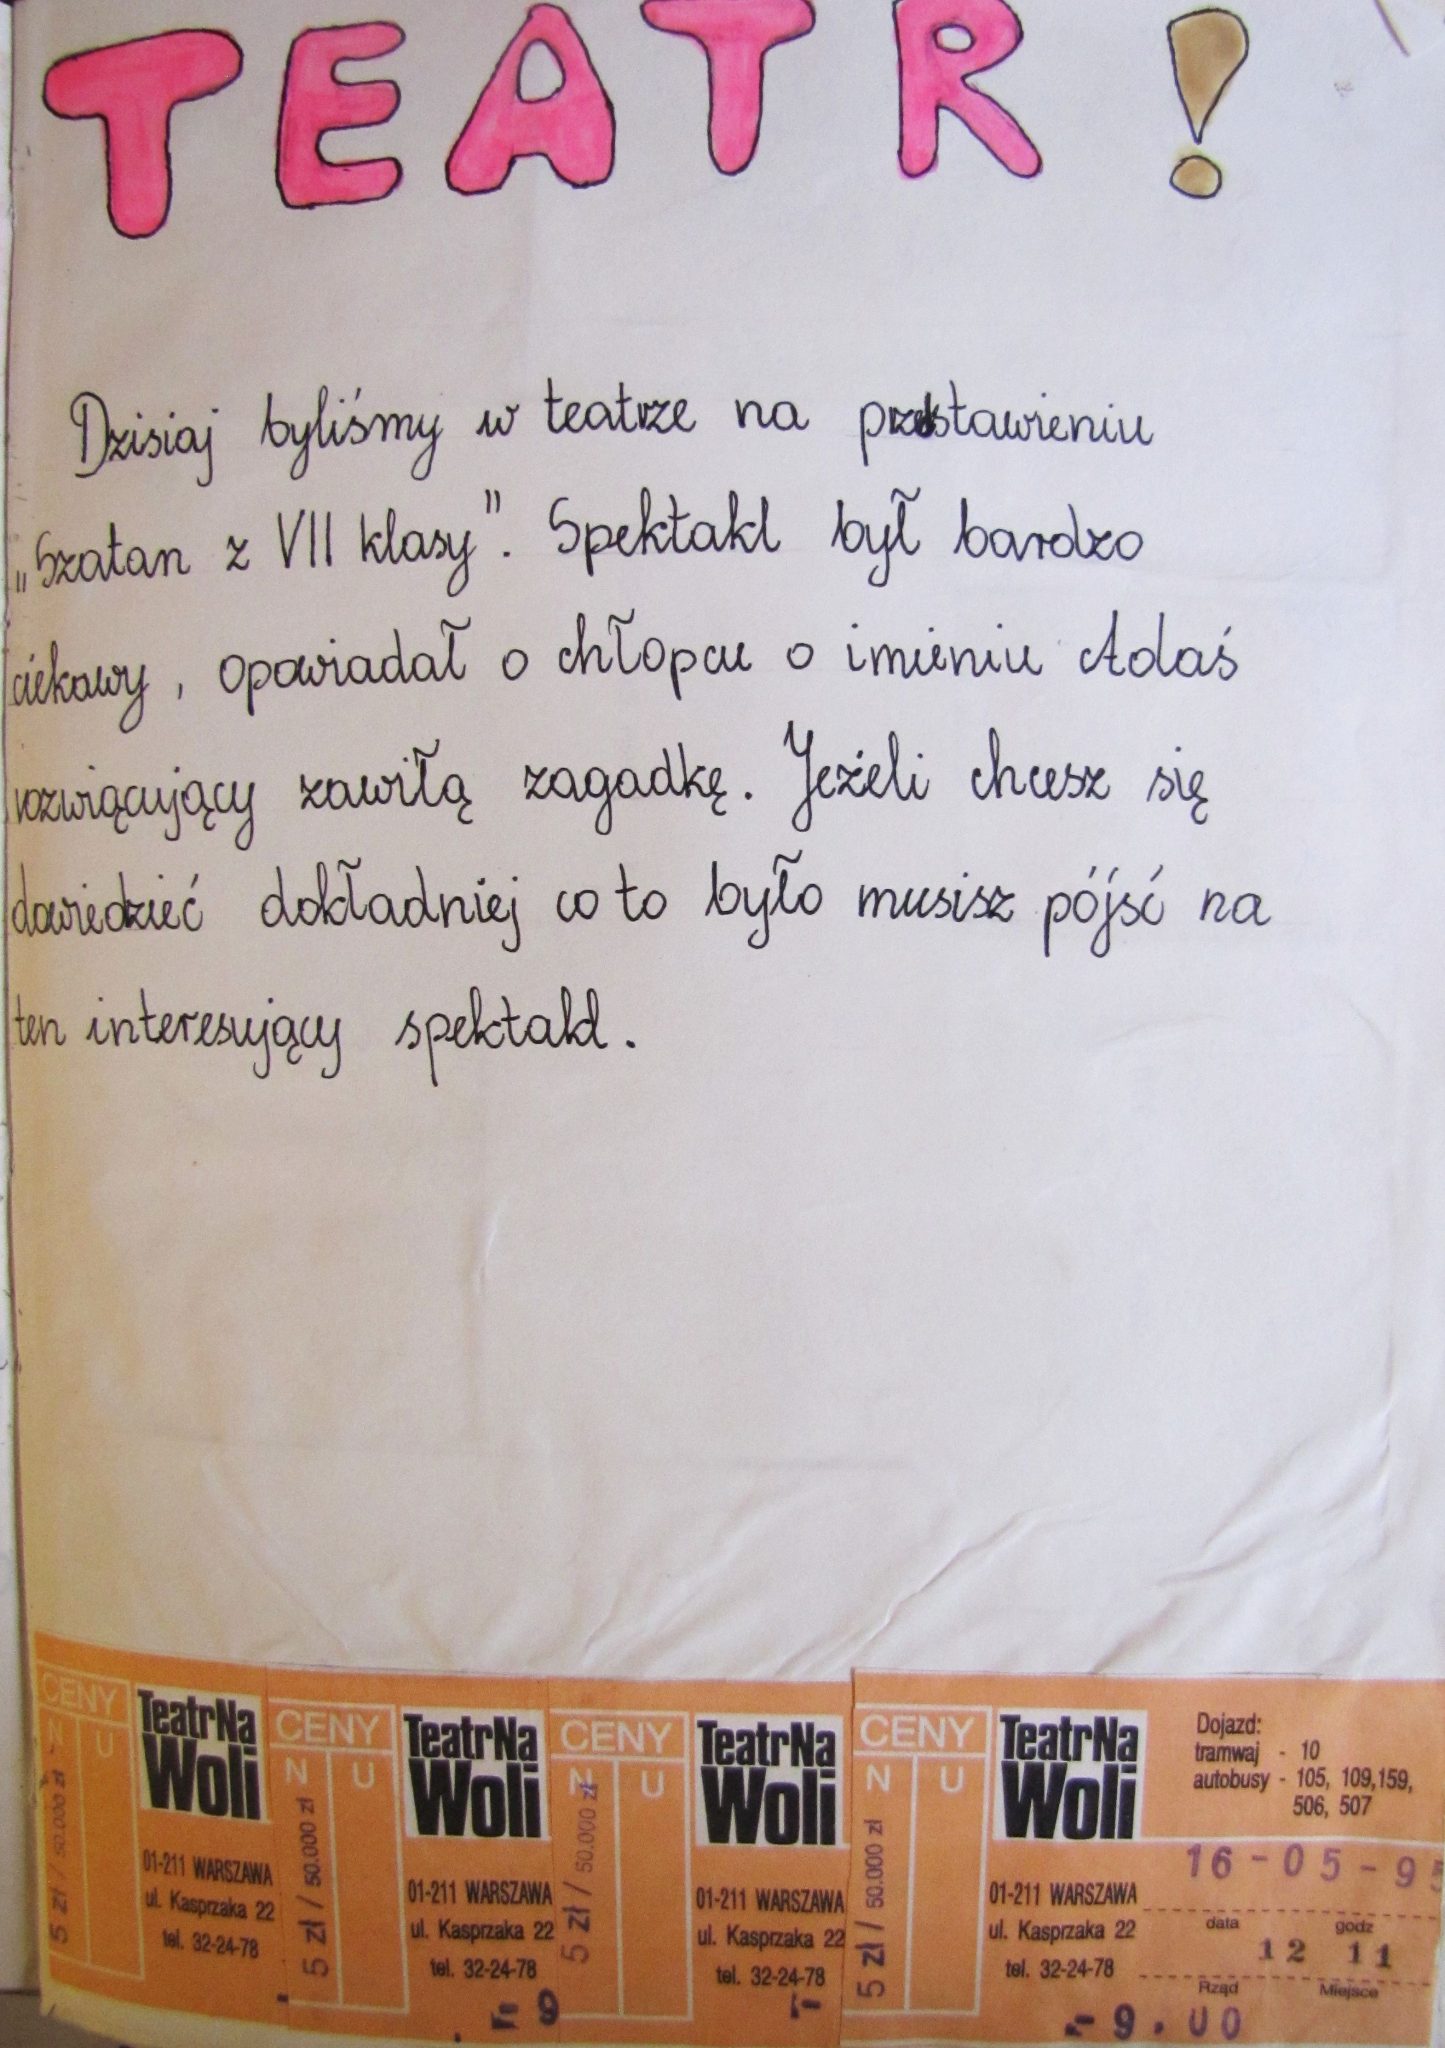 TEATR!
Dzisiaj byliśmy w teatrze na przedstawieniu
„Szatan z VII klasy". Spektakl był bardzo
ciekawy, opowiadał o chłopcu o imieniu Adaś
rozwiącujący zawiłą zagadkę. Jeżeli chcesz się
dowiedzieć dokładniej co to było musisz pójść na
ten interesujący spektakl.
CENY
N U
5 zł / 50.000 zł
TeatrNa
Woli
01-211 WARSZAWA
ul. Kasprzaka 22
tel. 32-24-78
CENY
N U
5 zł / 50.000 zł
TeatrNa
Woli
01-211 WARSZAWA
ul. Kasprzaka 22
tel. 32-24-78
- 9
CENY
N U
5 zł / 50.000 zł
TeatrNa
Woli
01-211 WARSZAWA
ul. Kasprzaka 22
tel. 32-24-78
CENY
N U
5 zł / 50.000 zł
TeatrNa
Woli
01-211 WARSZAWA
ul. Kasprzaka 22
tel. 32-24-78
Dojazd:
tramwaj - 10
autobusy - 105, 109,159,
506, 507
16-05-95
data godz
12 11
Rząd Miejsce
-9.00